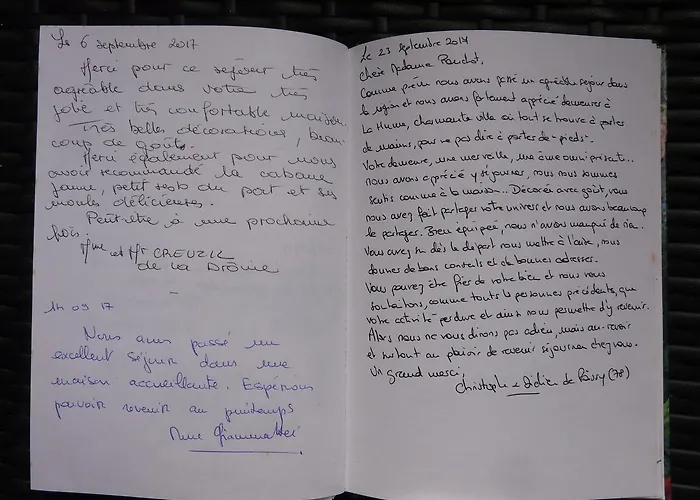 Le 6 septembre 2017
Merci pour ce séjour très
agréable dans votre très
jolie et très confortable maison.
Très belles décorations, beau-
coup de goûts.
Merci également pour nous
avoir recommandé la cabane
jaune, petit resto du port et ses
moules délicieuses.
Peut-être à une prochaine
fois.
Mme et Mr CREUZIL
de la Drôme
14 09 17
Nous avons passé un
excellent séjour dans une
maison accueillante. Espérons
pouvoir revenir au printemps
Mme
Le 23 septembre
Chère Madame
Comme prévu nous avons passé un agréable séjour dans
la région et nous avons fortement apprécié demeurer à
La Hume, charmante ville où tout se trouve à portes
de mains, pour ne pas dire à portes de-pieds-.
Votre demeure, une merveille, une âme omniprésente..
nous avons apprécié y séjourner, nous nous sommes
sentis comme à la maison... Décorée avec goût, vous
nous avez fait partager votre univers et nous avons beaucoup
le partager. Bien équipée, nous n'avons manqué de rien.
Vous avez su dès le départ nous mettre à l'aise, nous
donner de bons conseils et de bonnes adresses.
Vous pouvez être fier de votre bien et nous vous
souhaitons, comme toutes les personnes précédentes, que
votre activité perdure et ainsi nous permettre d'y revenir.
Alors nous ne vous dirons pas adieu, mais au-revoir
et surtout au plaisir de revenir séjourner chez vous.
Un grand merci,
Christophe & Didier de (78)